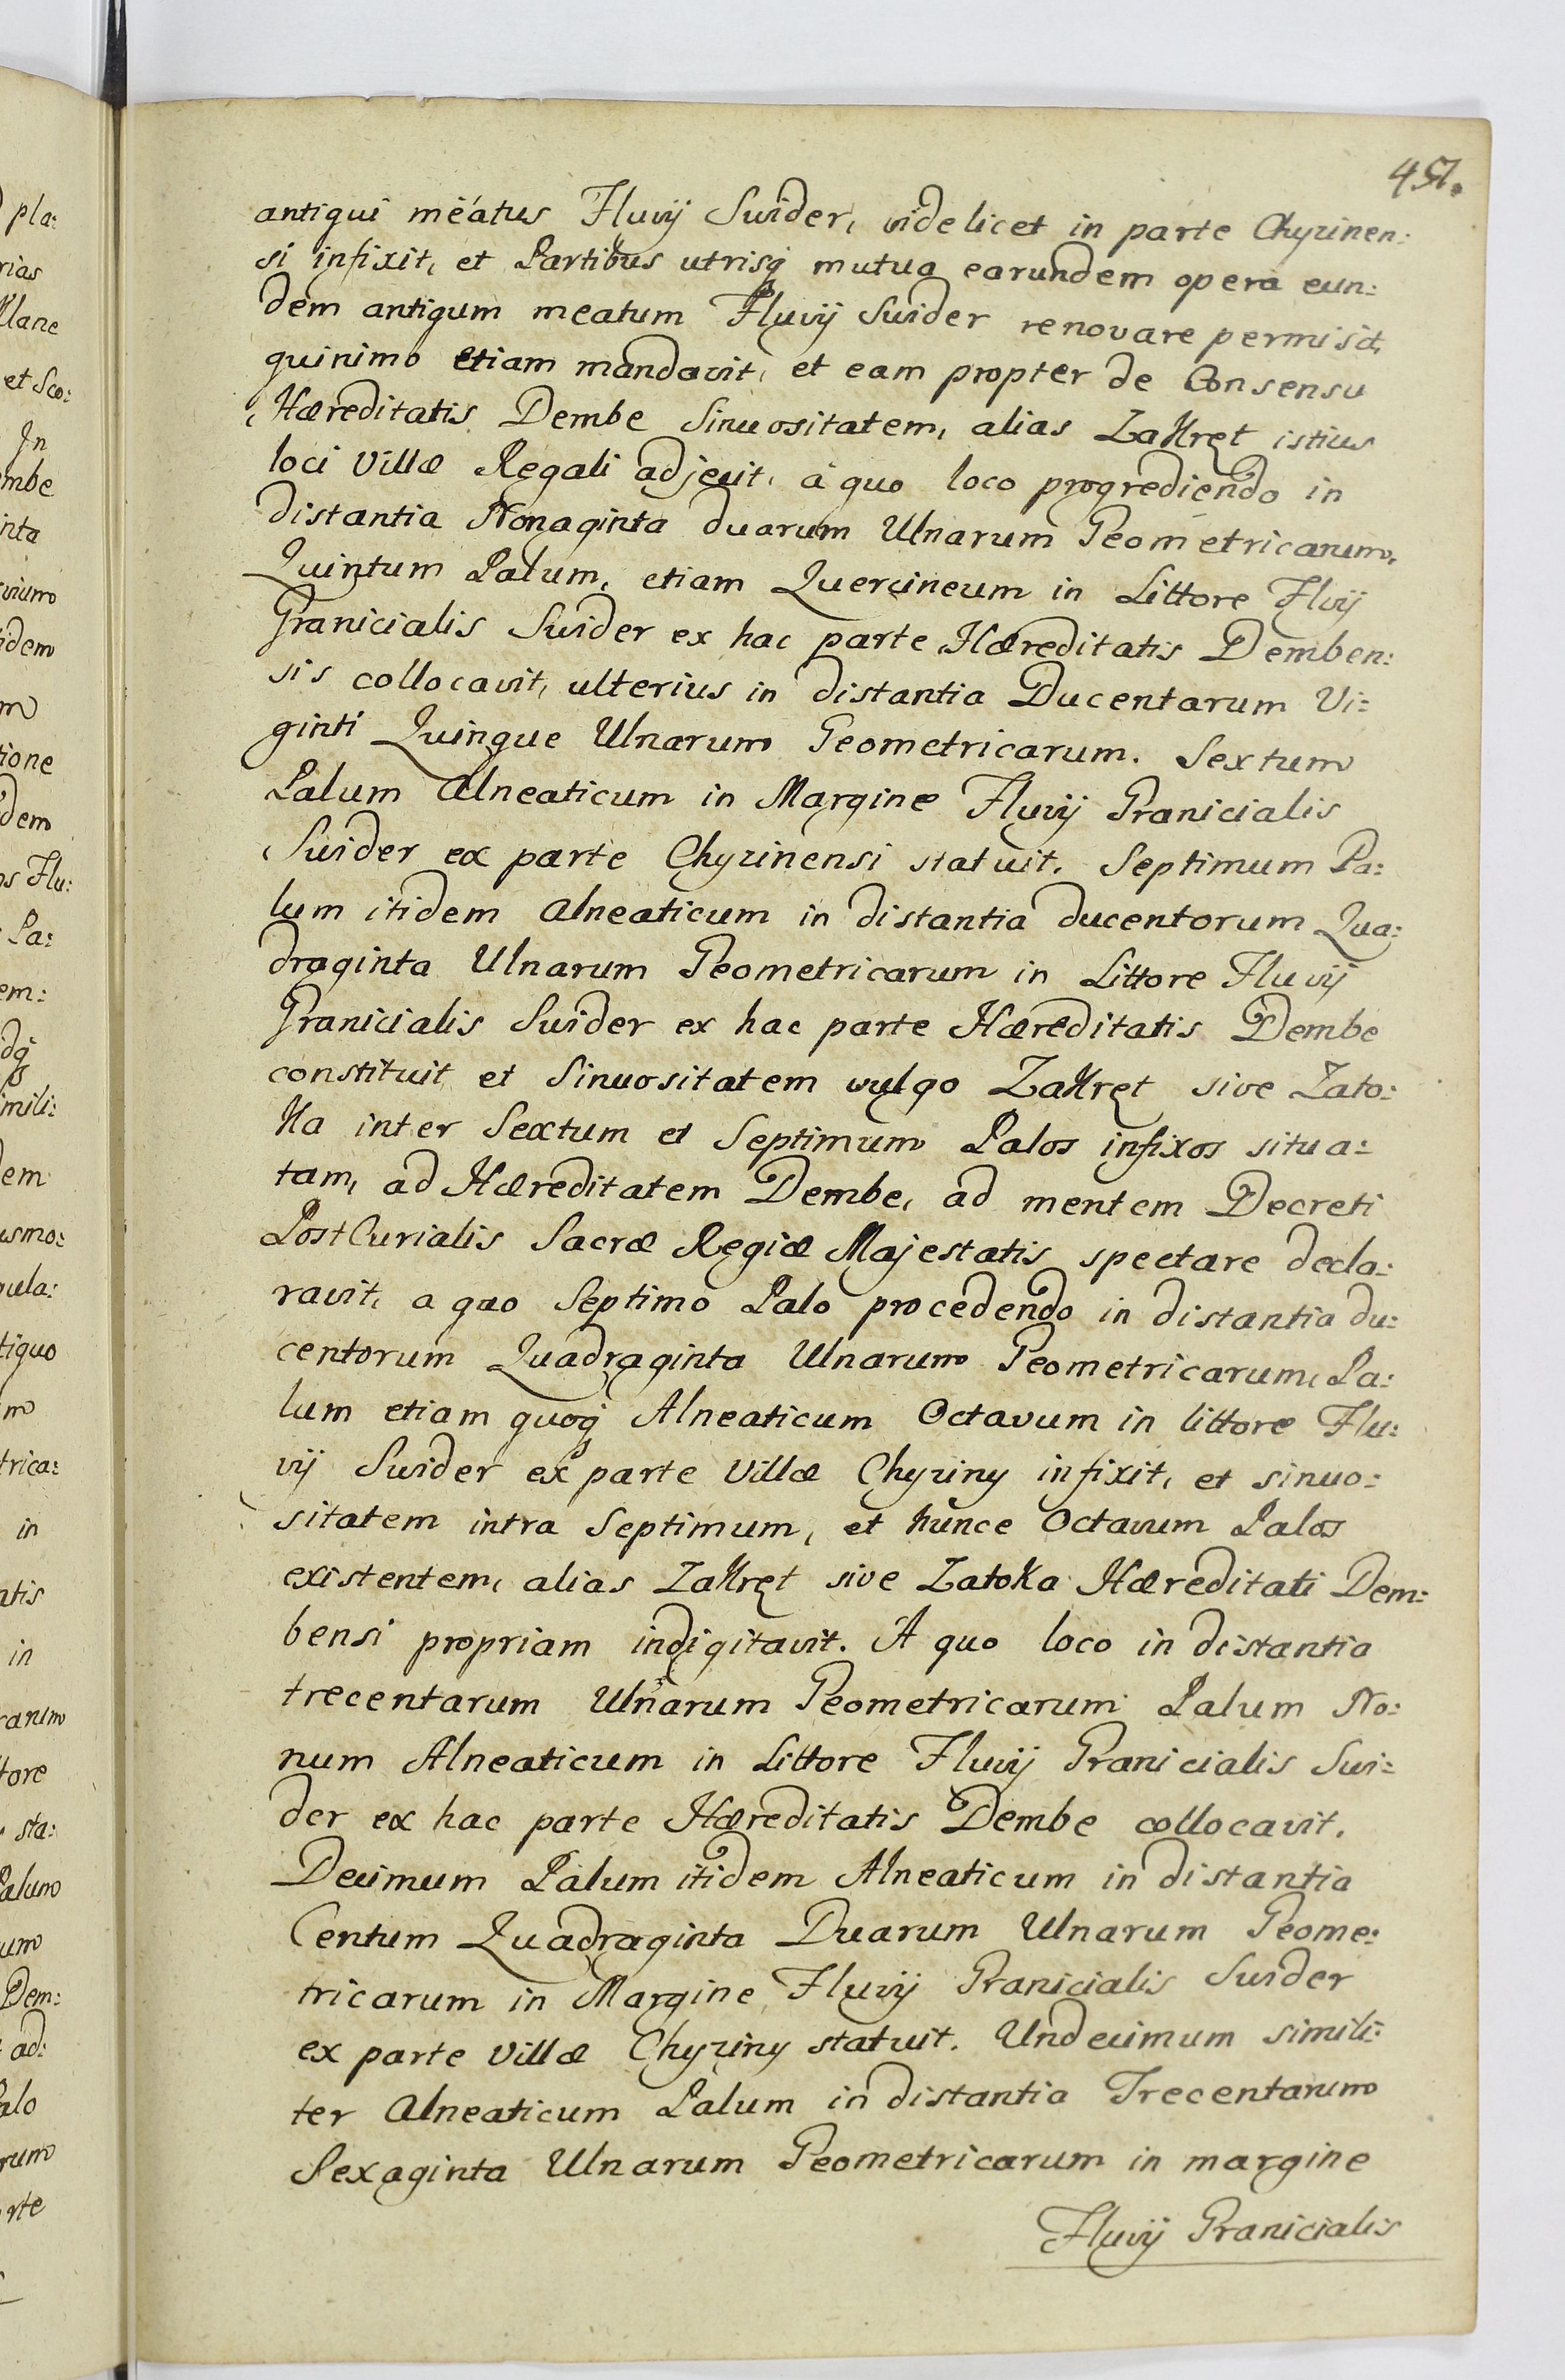 451.
antiqui meatus Fluvij Swider, videlicet in parte Chyzinen:
si infixit, et Partibus utrisq mutua earundem opera eun:
dem antiqum meatum Fluvij Swider renovare permisit,
quinimo etiam mandavit, et eam propter de Consensu
Hæreditatis Dembe Sinuositatem, alias Zakręt istius
loci Villæ Regali adjecit, à quo loco progrediendo in
distantia Nonaginta duarum Ulnarum Geometricarum,
Quintum Palum, etiam Quercineum in Littore Flvij
Granicialis Swider ex hac parte Hæreditatis Demben:
sis collocavit, ulterius in distantia Ducentarum Vi:
ginti Quinque Ulnarum Geometricarum. Sextum
Palum Alneaticum in Margine Fluvij Granicialis
Swider ex parte Chyzinensi statuit. Septimum Pa:
lum itidem Alneaticum in distantia ducentorum Qua:
draginta Ulnarum Geometricarum in Littore Fluvij
Granicialis Swider ex hac parte Hæreditatis Dembe
constituit et Sinuositatem vulgo Zakręt sive Zato:
ka inter Sextum et Septimum Palos infixos situa:
tam, ad Hæreditatem Dembe, ad mentem Decreti
PostCurialis Sacræ Regiæ Majestatis spectare decla:
ravit, a quo Septimo Palo procedendo in distantia du:
centorum Quadraginta Ulnarum Geometricarum, Pa:
lum etiam quoq Alneaticum Octavum in littore Flu:
vij Swider ex parte Villæ Chyziny infixit, et sinuo:
sitatem intra Septimum, et hunce Octavum Palos
existentem, alias Zakręt sive Zatoka Hæreditati Dem:
bensi propriam indigitavit. A quo loco in distantia
trecentarum Ulnarum Geometricarum Palum No:
num Alneaticum in Littore Fluvij Granicialis Swi:
der ex hac parte Hæreditatis Dembe collocavit.
Decimum Palum itidem Alneaticum in distantia
Centum Quadraginta Duarum Ulnarum Geome:
tricarum in Margine Fluvij Granicialis Swider
ex parte Villæ Chyziny statuit. Undecimum simili:
ter Alneaticum Palum in distantia Trecentarum
Sexaginta Ulnarum Geometricarum in margine
Fluvij Granicialis